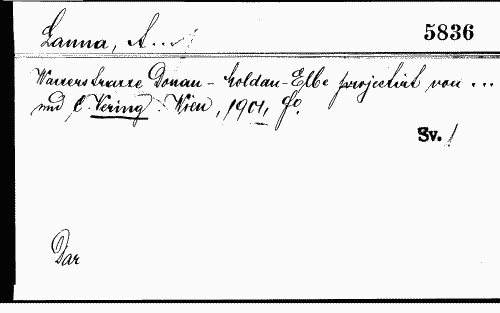 5836
Lanna, A....
Wasserstrasse Donau-Moldau-Elbe projectirt von ...
und C. Vering. Wien, 1901, fo.
Sv. 1
Dar